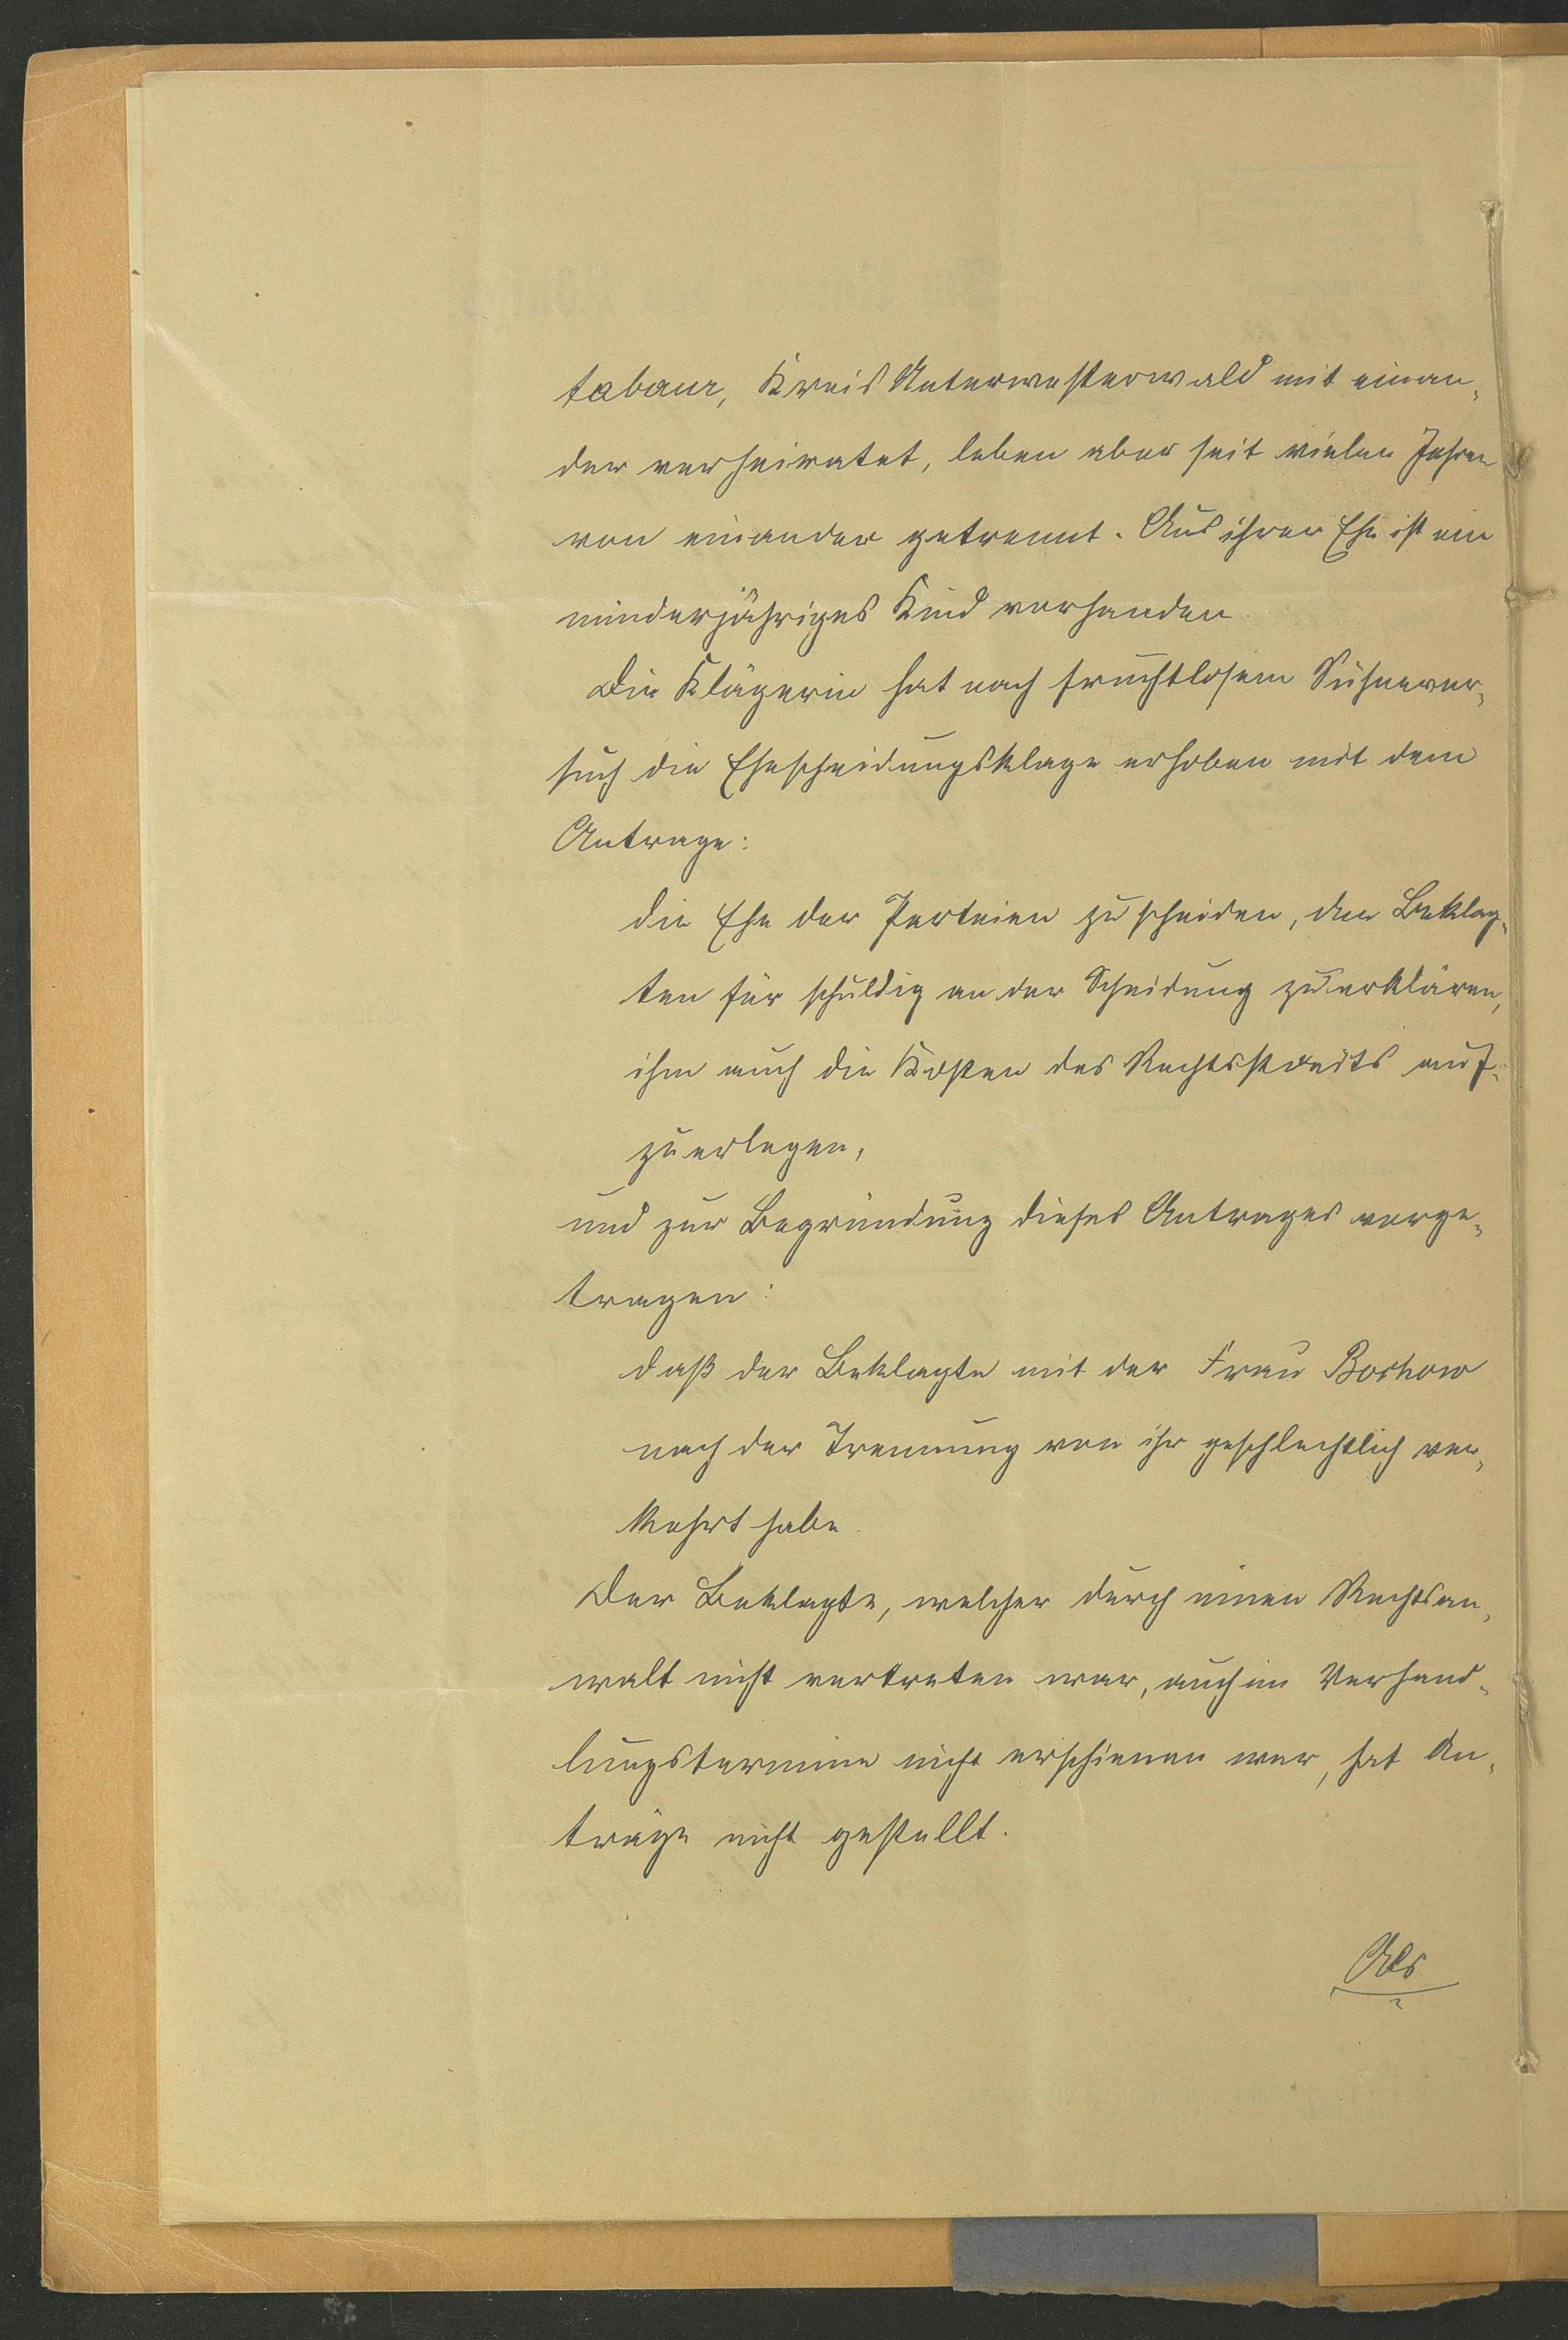 tabaur, Kreis Unterwesterwald mit einan-
der verheiratet, leben aber seit vielen Jahren
von einander getrennt. Aus ihrer Ehe ist ein
minderjähriges Kind vorhanden.
Die Klägerin hat nach fruchtlosem Sühnever-
such die Ehescheidungsklage erhoben mit dem
Antrage:
die Ehe der Parteien zu scheiden, den Beklag-
ten für schuldig an der Scheidung zu erklären,
ihm auch die Kosten des Rechtsstreits auf-
zuerlegen,
und zur Begründung dieses Antrages vorge-
tragen:
daß der Beklagte mit der Frau Borkow
nach der Trennung von ihr geschlechtlich ver-
kehrt habe.
Der Beklagte, welcher durch einen Rechtsan-
walt nicht vertreten war, auch im Verhand-
lungstermine nicht erschienen war, hat An-
träge nicht gestellt.